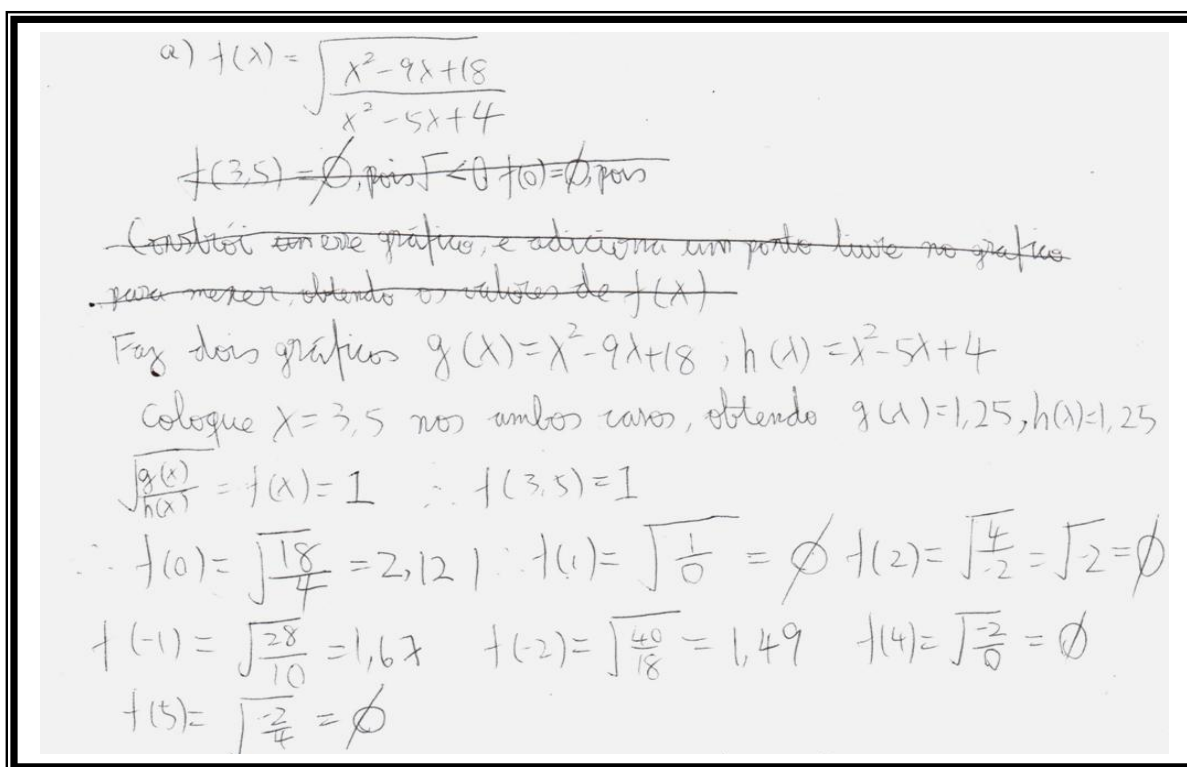 a) f(x) = √((x²-9x+18)/(x²-5x+4))
f(3,5) = ∅, pois √<0 f(0)=∅, pois
Constrói em esse gráfico, e adiciona um ponto livre no grafico
para mexer, obtendo os valores de f(x)
Faz dois gráficos g(x)=x²-9x+18; h(x)=x²-5x+4
coloque x=3,5 nos ambos casos, obtendo g(x)=1,25, h(x)=1,25
√(g(x)/h(x)) = f(x) = 1 ∴ f(3,5)=1
∴ f(0)= √(18/4) = 2,121 ∴ f(1)= √(1/0) = ∅ f(2)= √(4/-2) = √-2 = ∅
f(-1) = √(28/10) = 1,67 f(-2)= √(40/18) = 1,49 f(4)= √(-2/0) = ∅
f(5)= √(-2/4) = ∅